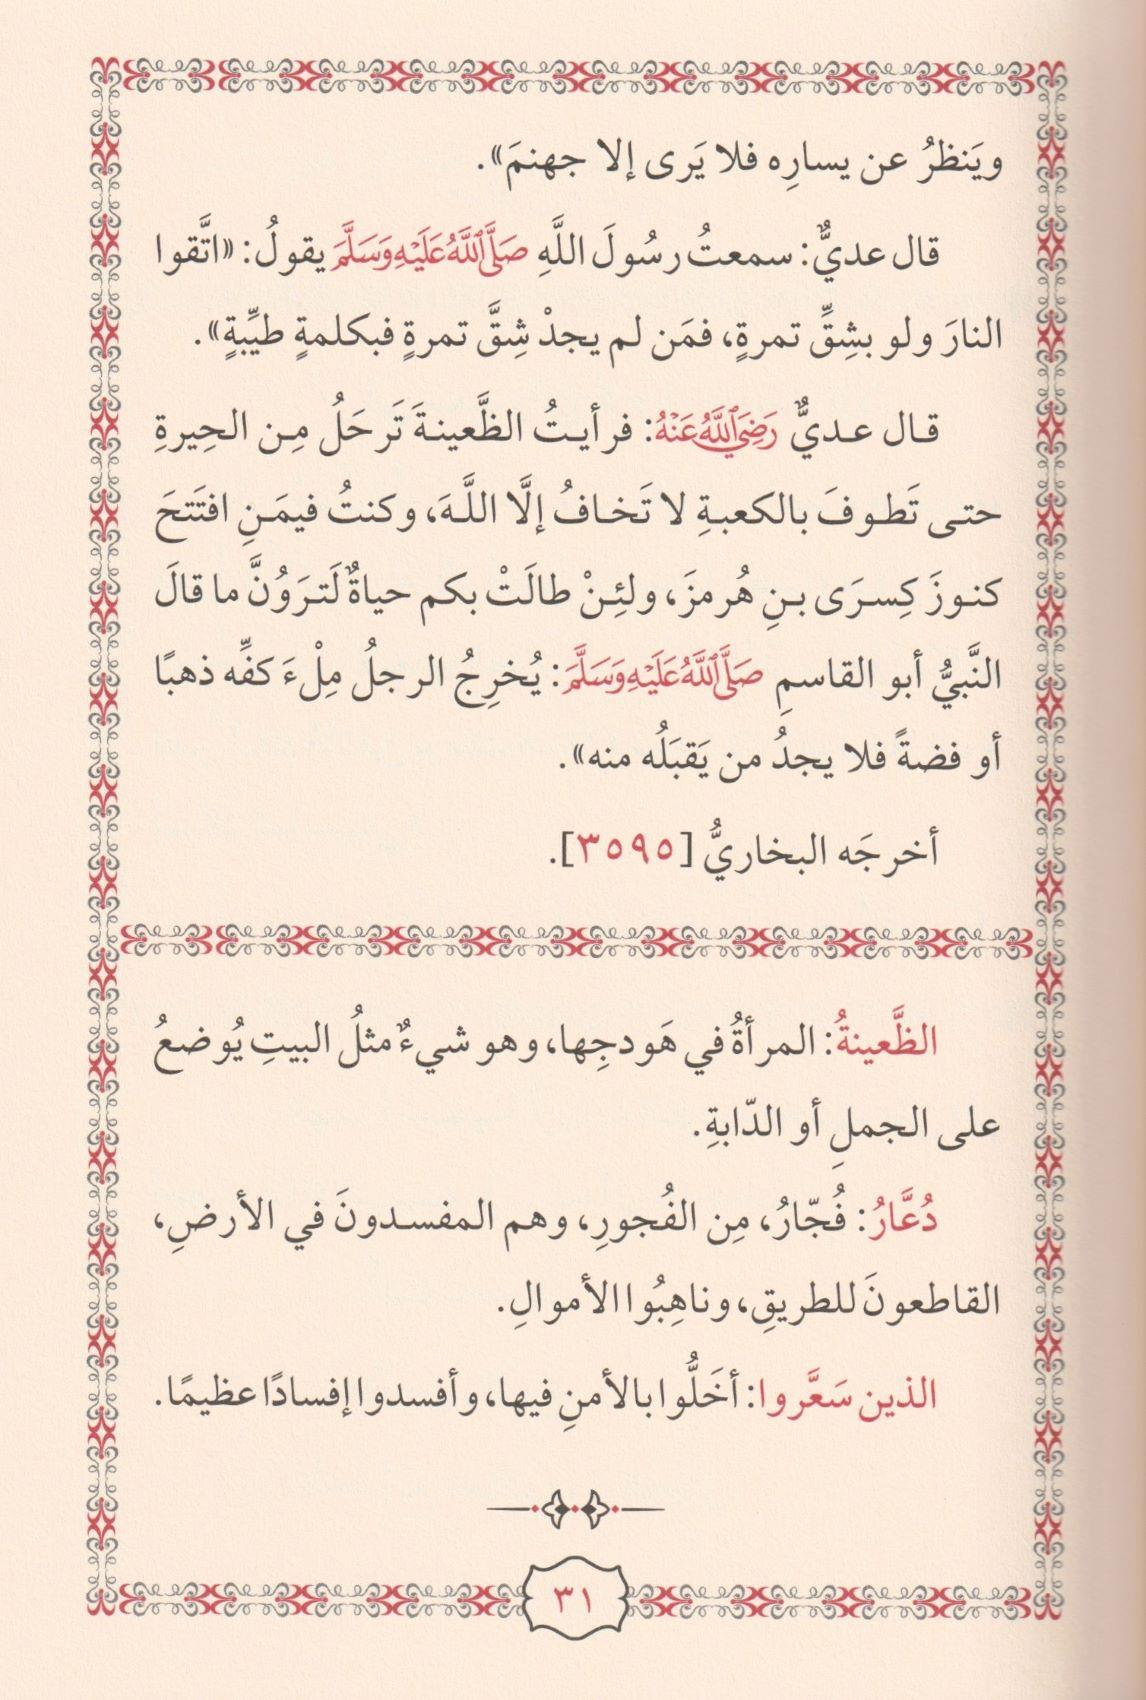 ويَنظرُ عن يسارِه فلا يَرى إلا جهنمَ».
قال عديٌّ: سمعتُ رسُولَ اللَّهِ صَلَّى اللَّهُ عَلَيْهِ وَسَلَّمَ يقولُ: «اتَّقوا
النارَ ولو بشِقِّ تمرةٍ، فمَن لم يجدْ شِقَّ تمرةٍ فبكلمةٍ طيِّبةٍ».
قال عديٌّ رَضِيَ اللَّهُ عَنْهُ: فرأيتُ الظَّعينةَ تَرحَلُ مِن الحِيرةِ
حتى تَطوفَ بالكعبةِ لا تَخافُ إلَّا اللَّهَ، وكنتُ فيمَنِ افتَتحَ
كنوزَ كِسرَى بنِ هُرمزَ، ولئِنْ طالَتْ بكم حياةٌ لَترَوُنَّ ما قالَ
النَّبيُّ أبو القاسمِ صَلَّى اللَّهُ عَلَيْهِ وَسَلَّمَ: يُخرِجُ الرجلُ مِلْءَ كفِّه ذهبًا
أو فضةً فلا يجدُ من يَقبَلُه منه».
أخرجَه البخاريُّ [٣٥٩٥].
الظَّعينةُ: المرأةُ في هَودجِها، وهو شيءٌ مثلُ البيتِ يُوضعُ
على الجملِ أو الدّابةِ.
دُعَّارُ: فُجّارُ، مِن الفُجورِ، وهم المفسدونَ في الأرضِ،
القاطعونَ للطريقِ، وناهِبُوا الأموالِ.
الذين سَعَّروا: أخَلُّوا بالأمنِ فيها، وأفسدوا إفسادًا عظيمًا.
٣١